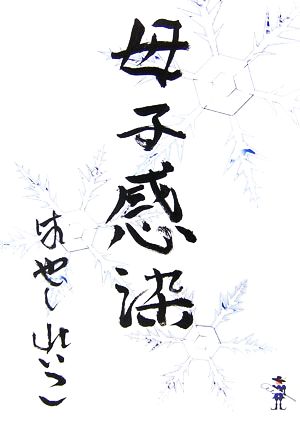 母子感染
はやし れいこ